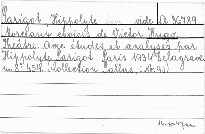 Parigot Hippolyte vide A 36789
Morceaux choisis de Victor Hugo.
Théâtre. Avec études et analyses par
Hippolyte Parigot. Paris 1934 Delagrave
in 8° 454. (Collection Pallas,